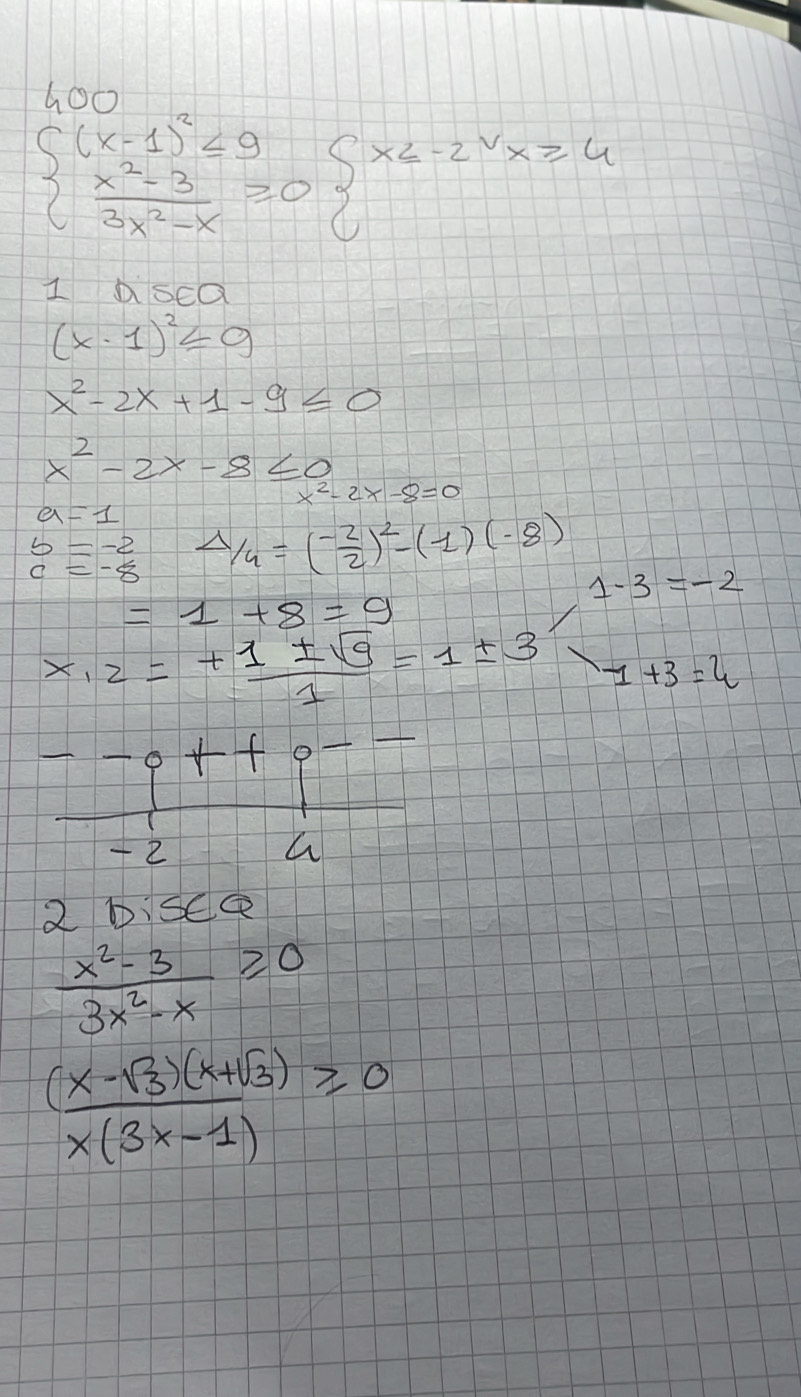 400
{ (x-1)² ≤ 9 { x ≤ -2 ∨ x ≥ 4
{ x²-3 / 3x²-x ≥ 0
1 DISEQ
(x-1)² ≤ 9
x² - 2x + 1 - 9 ≤ 0
x² - 2x - 8 ≤ 0
x² - 2x - 8 = 0
a = 1
b = -2
c = -8
Δ/4 = (-2/2)² - (1)(-8)
= 1 + 8 = 9
x1,2 = +1 ± √9 / 1 = 1 ± 3
1-3 = -2
1+3 = 4
- - + + - -
-2 4
2 DiSEQ
x²-3 / 3x²-x ≥ 0
(x-√3)(x+√3) / x(3x-1) ≥ 0